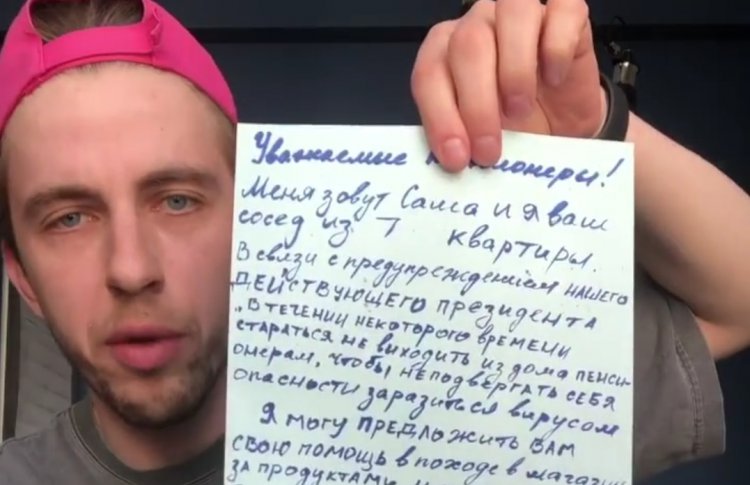 Уважаемые !
Меня зовут Саша и я ваш
сосед из 7 квартиры.
В связи с предупреждением нашего
ДЕЙСТВУЮЩЕГО ПРЕЗИДЕНТА
„В ТЕЧЕНИИ НЕКОТОРОГО ВРЕМЕНИ
СТАРАТЬСЯ НЕ ВЫХОДИТЬ ИЗ ДОМА ПЕНСИ-
ОНЕРАМ, ЧТОБЫ НЕПОДВЕРГАТЬ СЕБЯ
ОПАСНОСТИ ЗАРАЗИТЬСЯ ВИРУСОМ
Я МОГУ ПРЕДЛОЖИТЬ ВАМ
СВОЮ ПОМОЩЬ В ПОХОДЕ В МАГАЗИН
ЗА ПРОДУКТАМИ